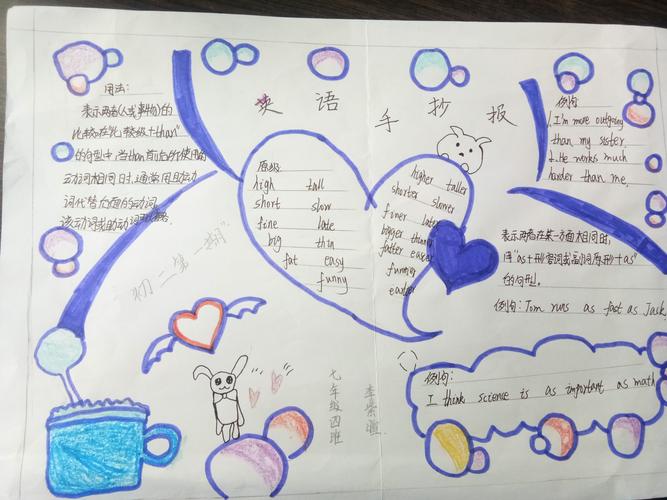 英语手抄报
用法:
表示两者(人或事物)的
比较在"比较级+than"
的句型中,当than前后所使用的
动词相同时,通常用助动
词代替后面的动词
该动词或助动词
原级
high tall
short slow
fine late
big thin
fat easy
funny
higher taller
shorter slower
finer later
bigger thinner
fatter easier
funnier
例句
1. I'm more outgoing
than my sister
2. He works much
harder than me.
表示两者在某一方面相同时,
用"as+形容词或副词原形+as"
的句型。
例句: Tom runs as fast as Jack.
例句:
I think science is as important as math
初二第一期"
七年级四班
李紫